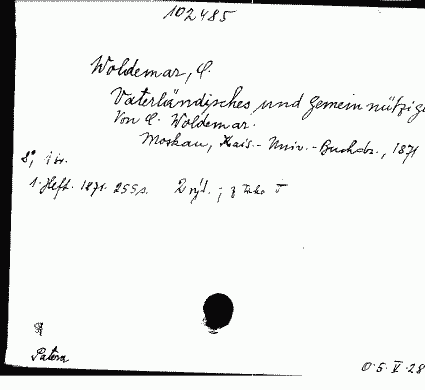 102485
Woldemar, C.
Vaterländisches und gemeinnützige
Von C. Woldemar.
Moskau, Kais.- Univ.- Buchdr., 1871
8°,
1. Heft. 1871. 255 s. 2 výt. ;
Patera
O. 5. V. 28